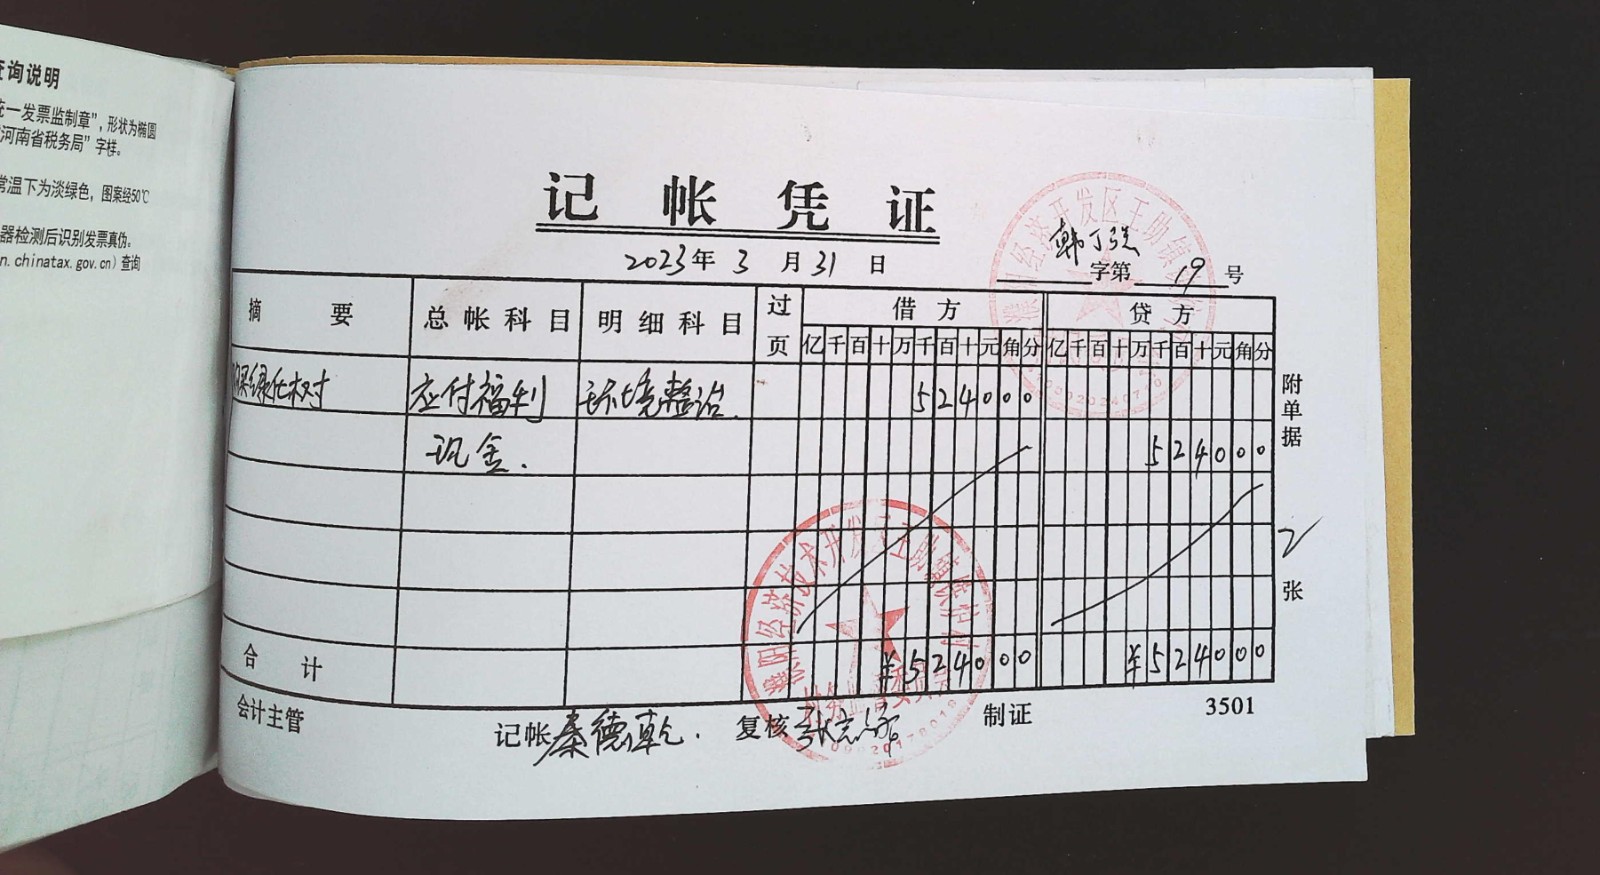 查询说明
统一发票监制章”，形状为椭圆
河南省税务局”字样。
常温下为淡绿色，图案经50℃
器检测后识别发票真伪。
n.chinatax.gov.cn）查询
记帐凭证
2023年3月31日
字第19号
摘要 总帐科目 明细科目 过页 借方 贷方
亿千百十万千百十元角分 亿千百十万千百十元角分
绿化树 应付福利 环境整治. 524000
现金. 524000
合计 ¥524000 ¥524000
附单据 2 张
会计主管 记帐 秦德乾. 复核 制证 3501
濮阳经济技术开发区王助镇